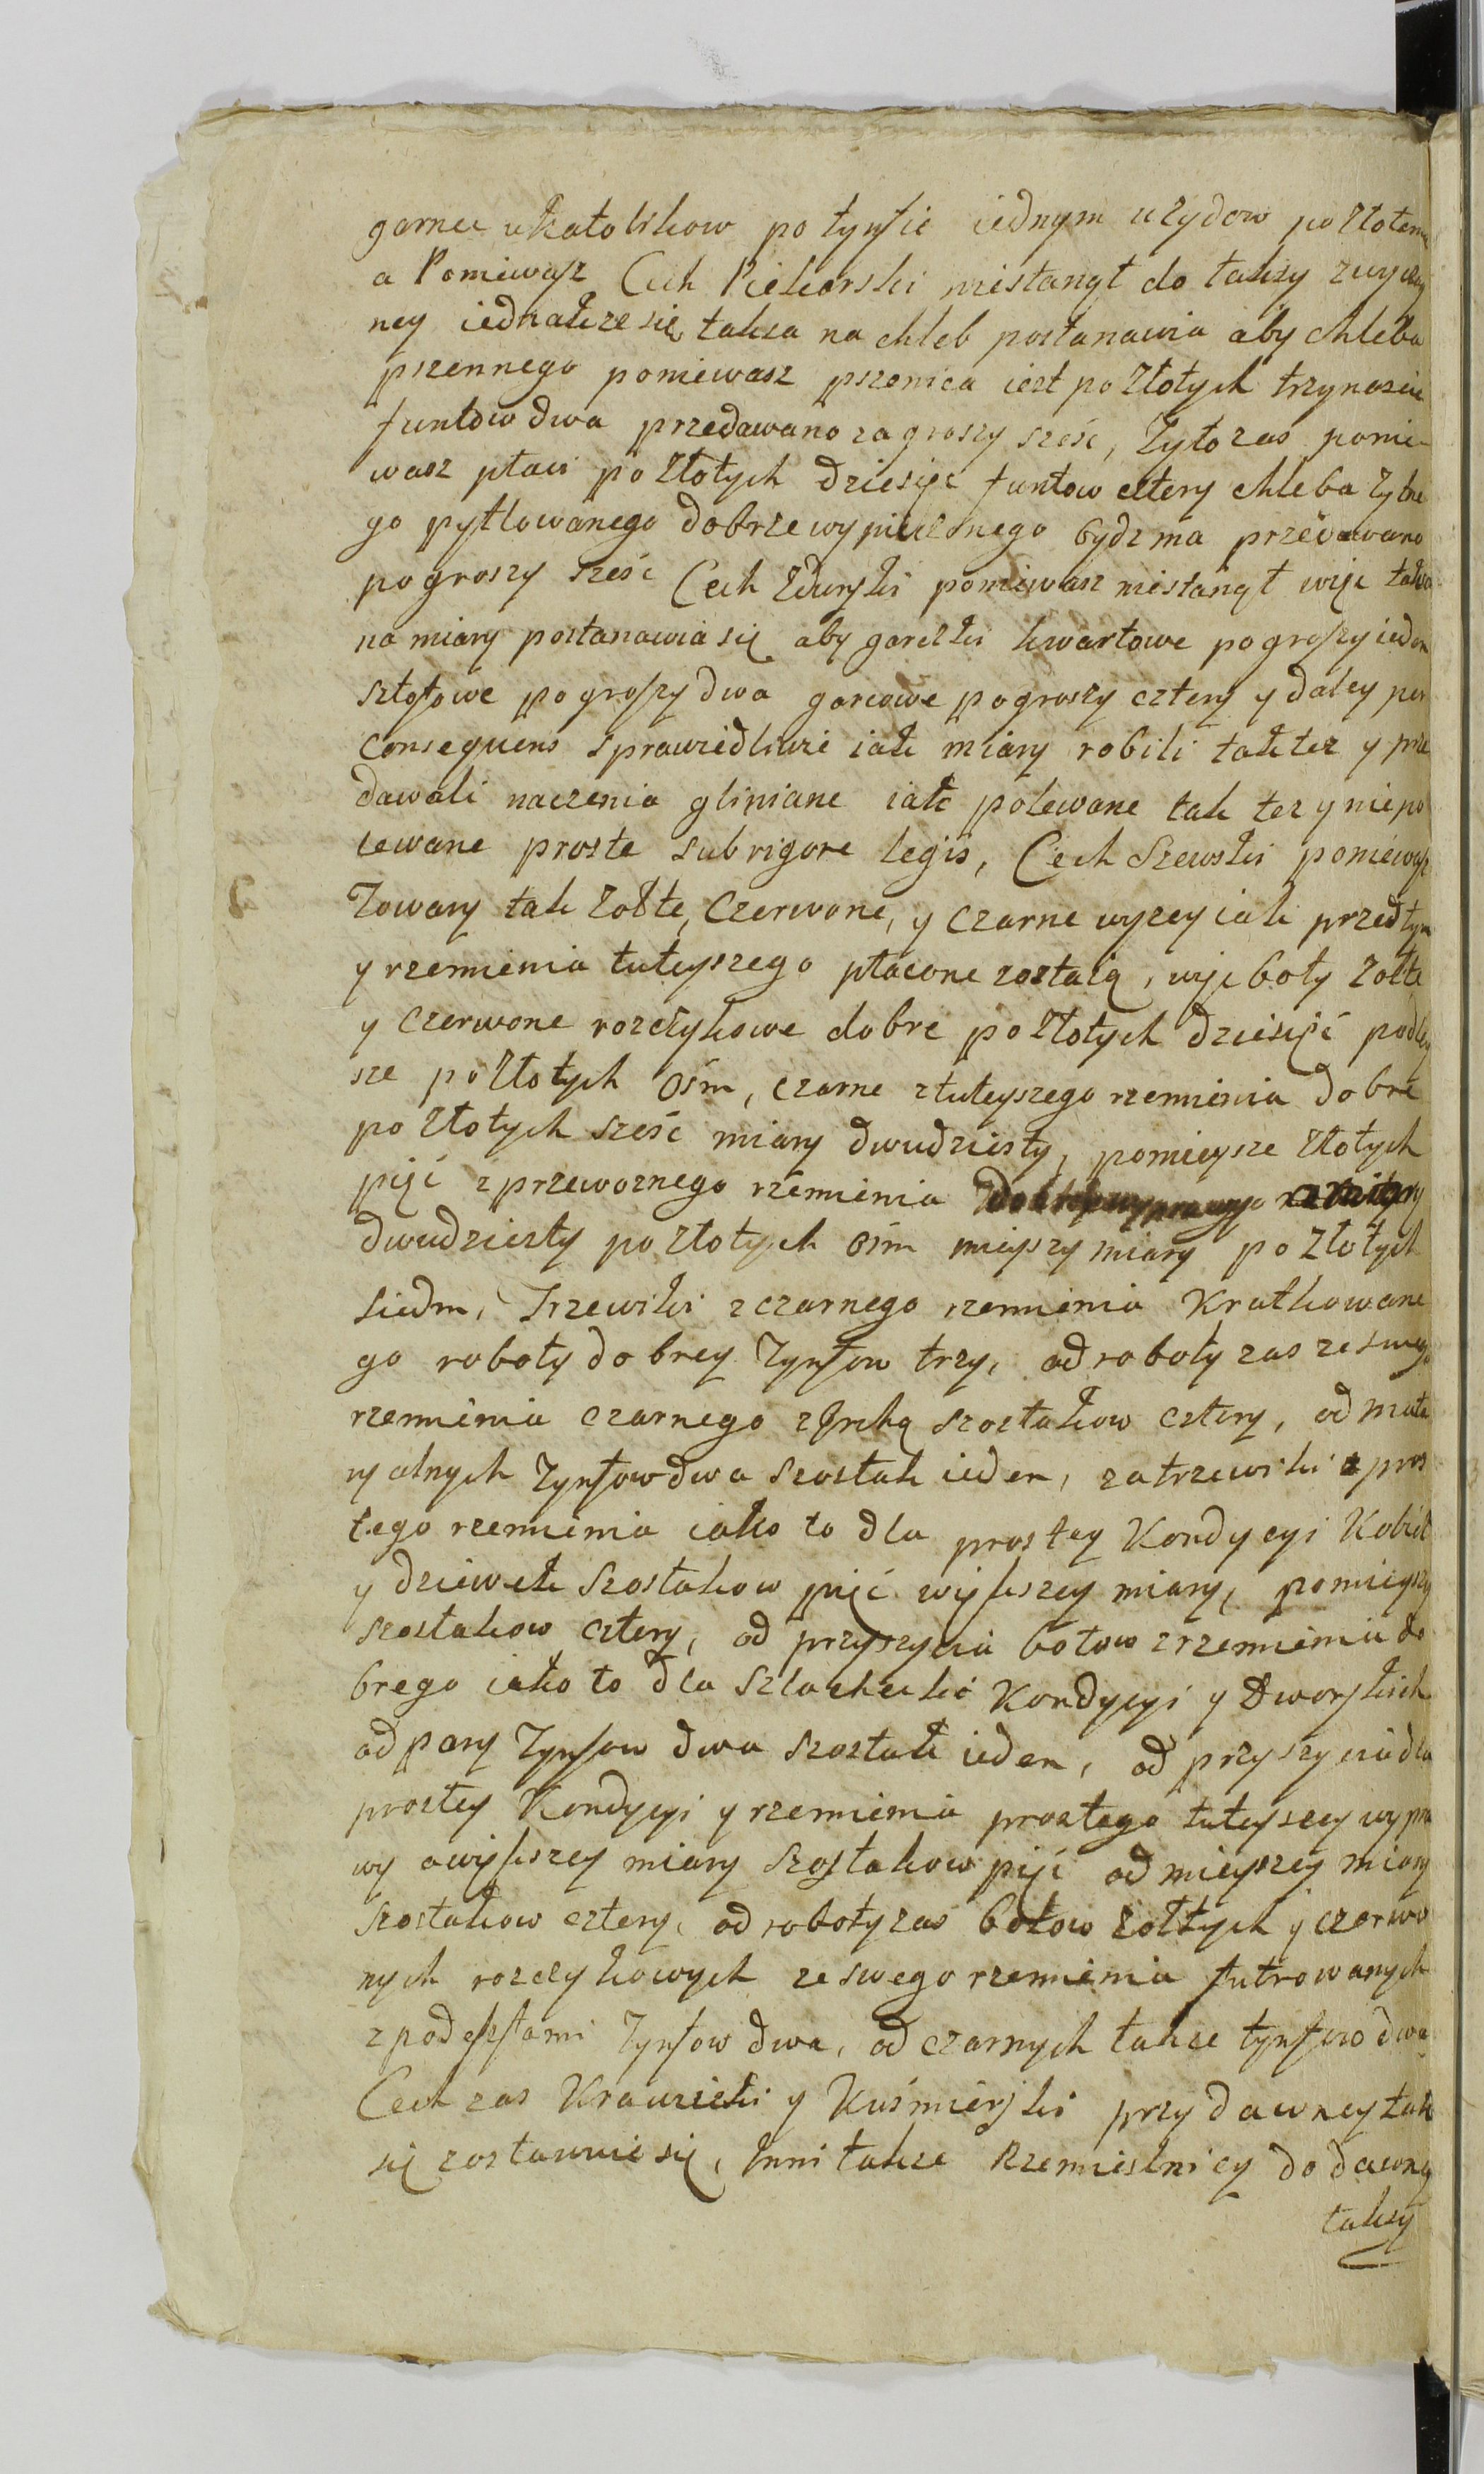 garnca u katolikow po tynfie iednym u zydow po złotemu
a Poniewasz Cech Piekarski niestanął do taksy zwyczay
ney iednakze się taksa na chleb postanawia aby chleba
pszennego poniewasz pszenica iest po złotych trzynascie
funtow dwa przedawano za groszy sześć, Zyto zas ponie
wasz płaci po złotych dziesięc funtow cztery chleba zytne
go pytlowanego dobrze wypieczonego bydz ma przedawano
po groszy sześć Cech Zdunski poniewasz niestanął więc taksa
na miary postanawia się aby garczki kwartowe po groszy ieden
sztofowe po groszy dwa garcowe po groszy cztery y daley per
consequens sprawiedliwie iak miary robili tak tez y prze
dawali naczenia gliniane iak polewane tak tez y niepo
lewane proste sub rigore legis, Cech Szewski poniewasz
Towary tak zołte, Czerwone, y czarne wyzey iak przed tym
y rzemienia tuteyszego płacone zostaią, więc boty zołte
y czerwone rozczykowe dobre po złotych dziesięć podley
sze po złotych ośm, czarne z tuteyszego rzemienia dobre
po złotych sześć miary dwudziesty, pomieysze złotych
pięć z przewoznego rzemienia
dwudziesty po złotych ośm mieyszy miary po złotych
siedm, Trzewiki z czarnego rzemienia Kratkowane
go roboty dobrey Tynfow trzy, od roboty zas ze swego
rzemienia czarnego szostakow cztery, od mate
ryalnych Tynfow dwa szostak ieden, za trzewiki z pros
tego rzemienia iako to dla prostey Kondycyi Kobiet
y dziewek szostakow pięć większey miary, pomieyszy
szostakow cztery, od przyszycia botow z rzemienia do
brego iako to dla Szlacheckie Kondycyi y Dworskich
od pary Tynfow dwa szostak ieden, od przyszycia dla
prostey Kondycyi y rzemienia prostego tuteyszey wypra
wy o większey miary szostakow pięć od mieyszey miary
szostakow cztery, od roboty zas botow zołtych y czerwo
nych rozczykowych ze swego rzemienia futrowanych
z podeszfami Tynfow dwa, od czarnych takze tynfow dwa
Cech zas Krawiecki y Kuśnierski przy dawney tak
się zostawuie się, Inni takze Rzemieslnicy do dawney
taksy